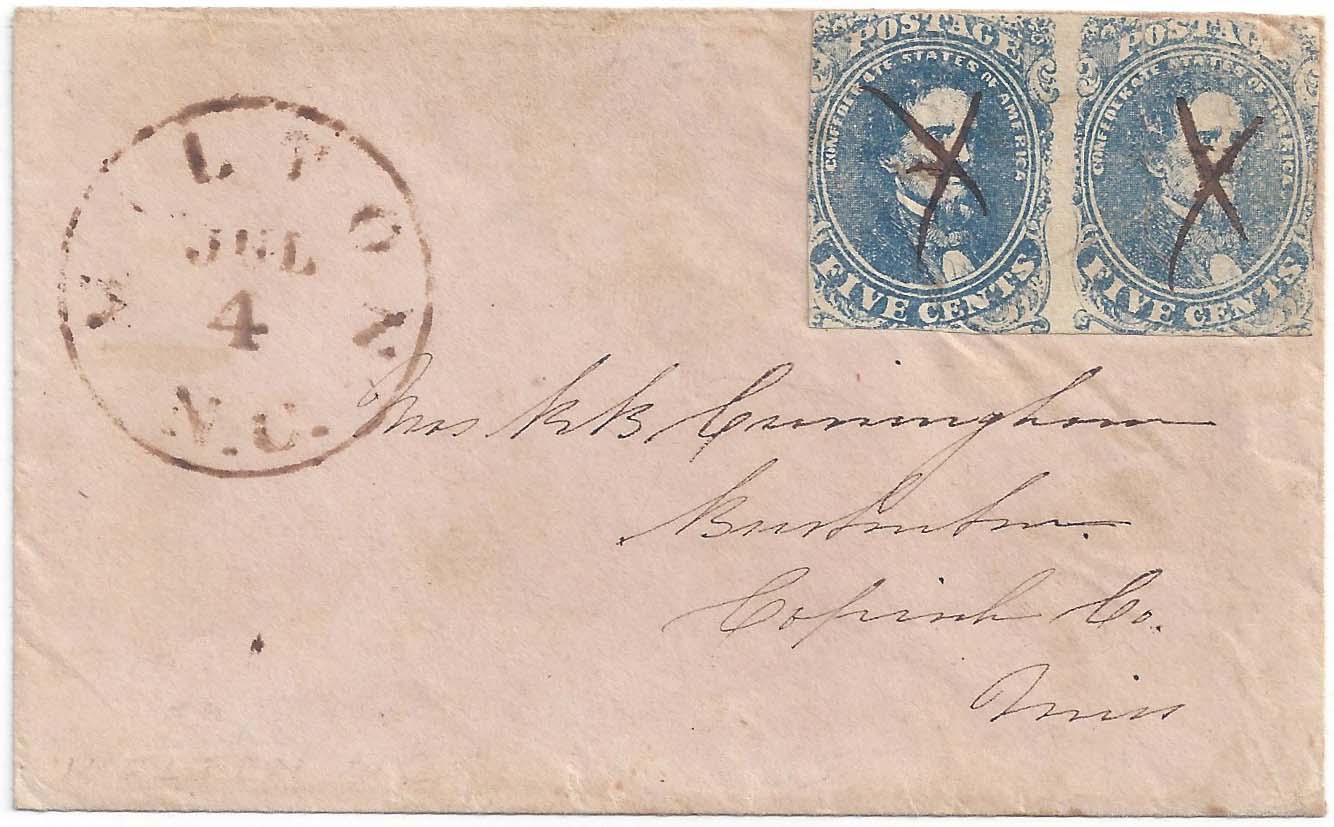 POSTAGE
CONFEDERATE STATES OF AMERICA
FIVE CENTS
POSTAGE
CONFEDERATE STATES OF AMERICA
FIVE CENTS
MILTON
JUL
4
N.C.
Mrs Cunningham
Burtonton.
Copiah Co.
Miss